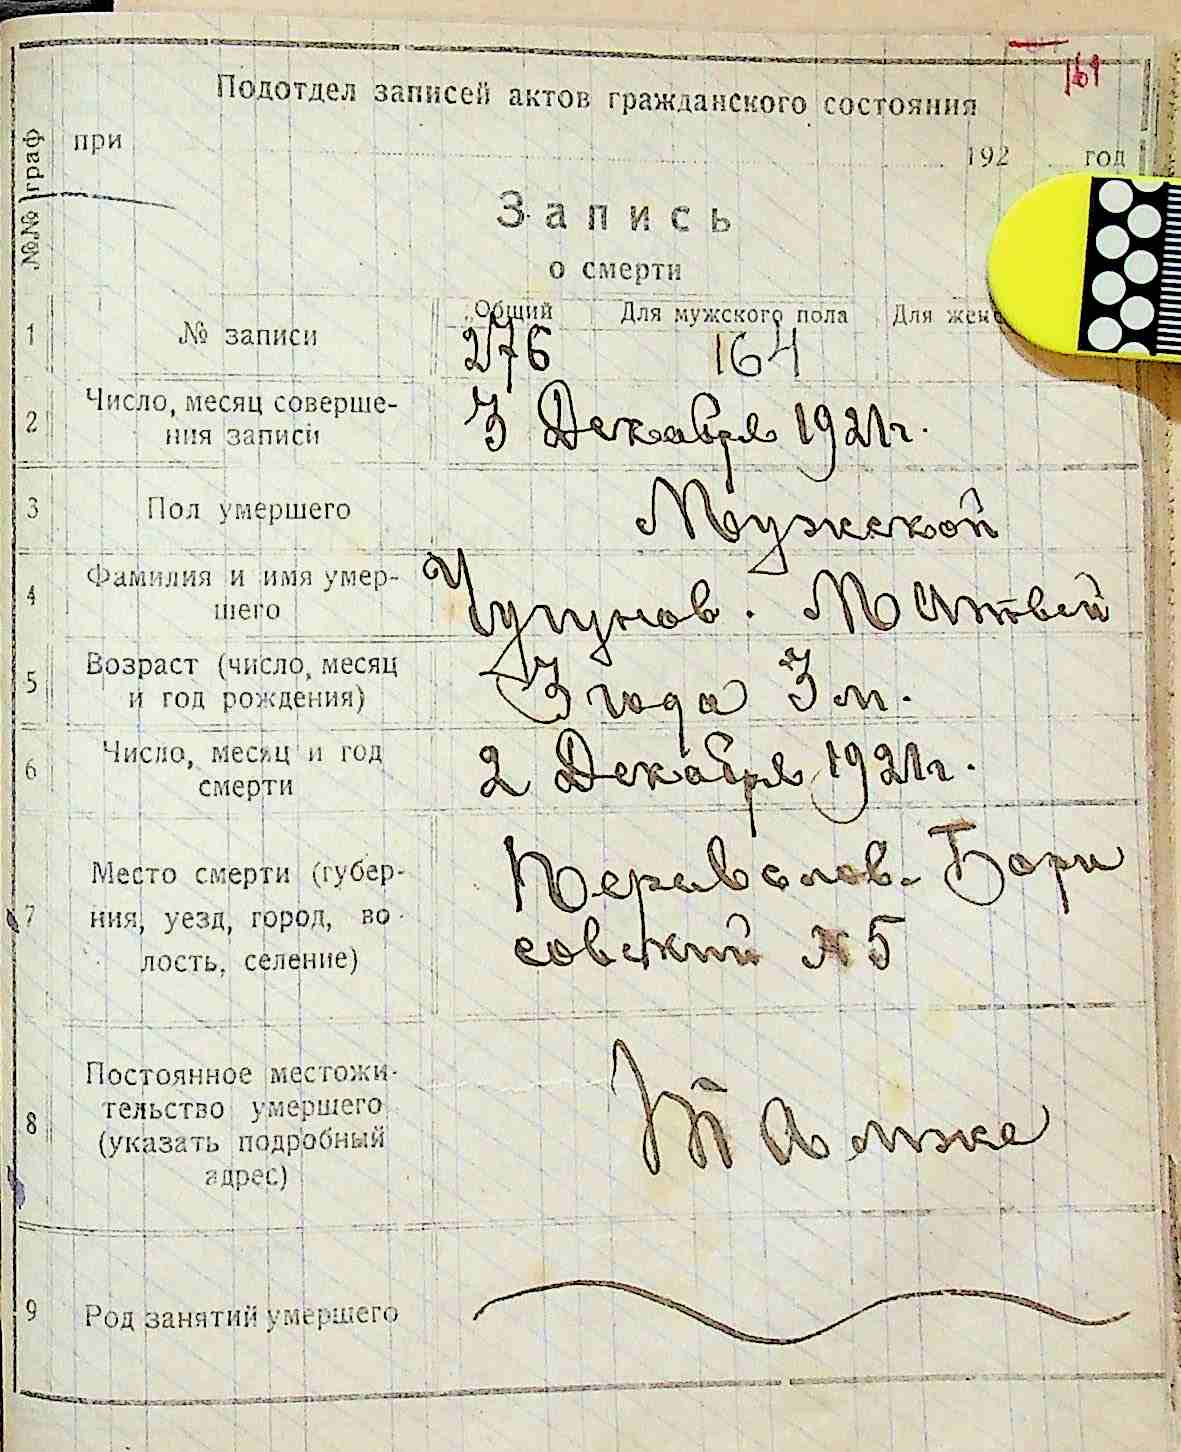 161
Подотдел записей актов гражданского состояния
при 192 год
№№ граф
Запись
о смерти
Общий Для мужского пола Для женс
1 № записи 276 164
2 Число, месяц соверше-
ния записи 3 Декабря 1921 г.
3 Пол умершего Мужской
4 Фамилия и имя умер-
шего Чугунов. Матвей
5 Возраст (число, месяц
и год рождения) 3 года 3 м.
6 Число, месяц и год
смерти 2 Декабря 1921 г.
7 Место смерти (губер-
ния, уезд, город, во-
лость, селение) Перевалов. Бори
совский № 5
8 Постоянное местожи-
тельство умершего
(указать подробный
адрес) Там же
9 Род занятий умершего